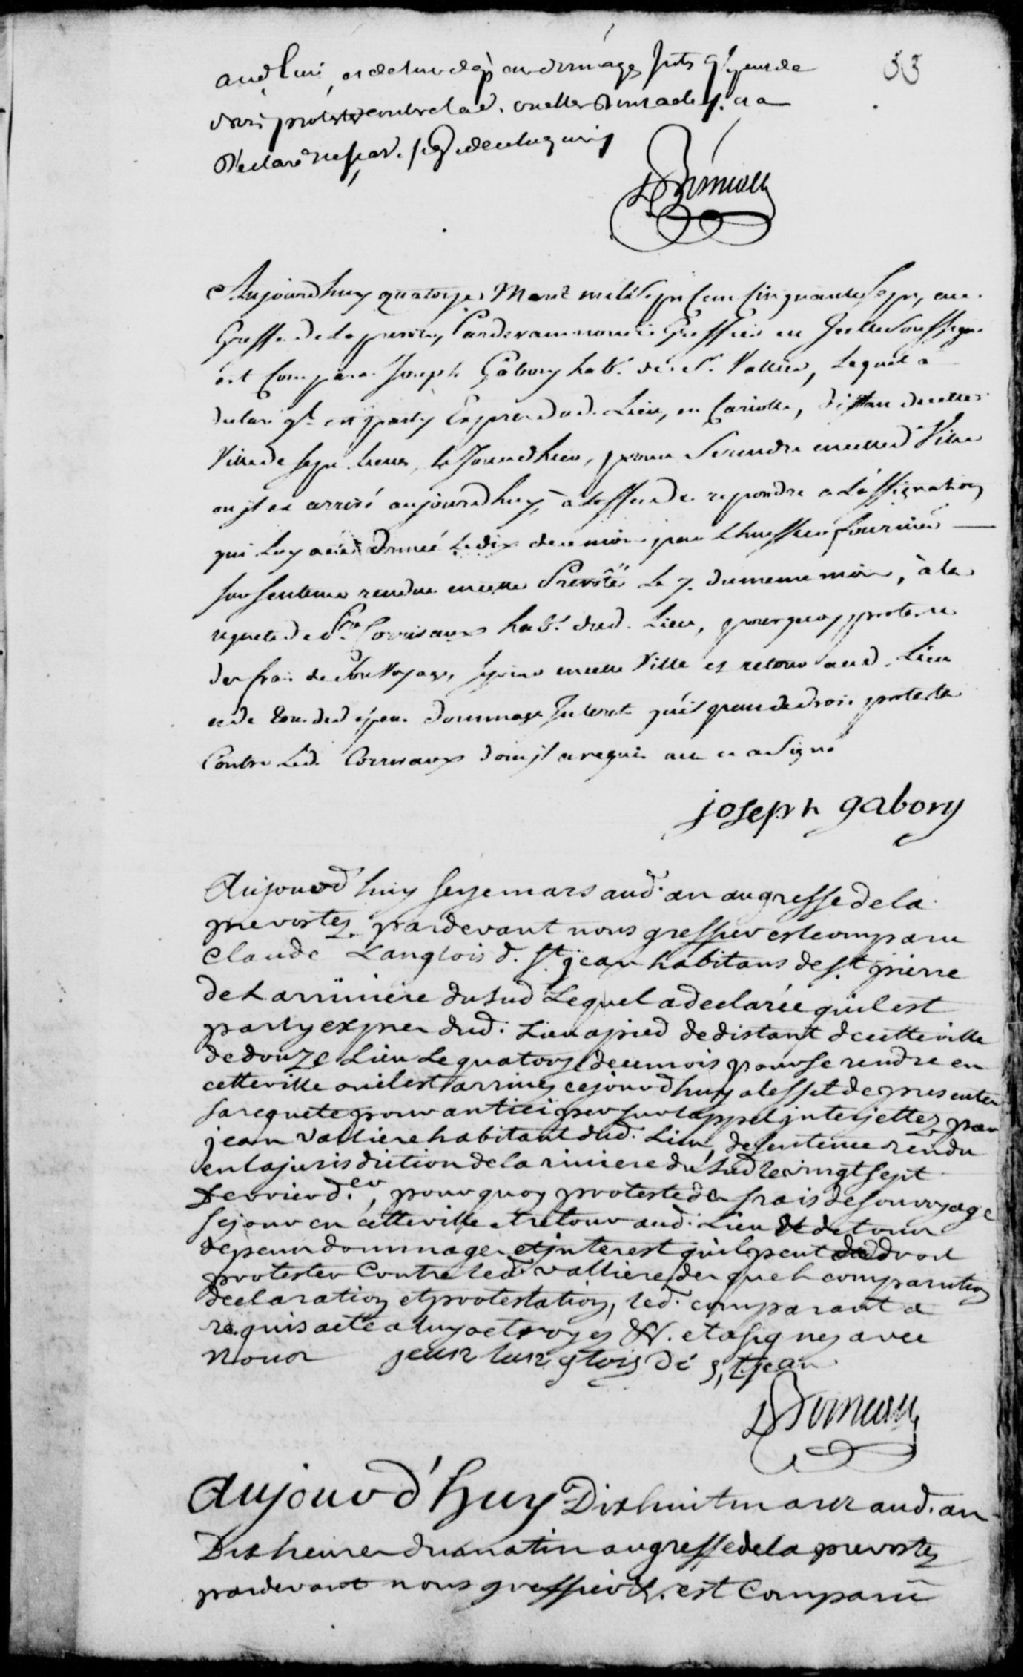 53
aud. lieu, et de tous dep. dommages Jnts. qu'il peut de
droit protester contre lad. Dont acte, et a
Declaré ne scav. signer de ce enquis
Boimeau
Aujourd'huy quatorze Mars mil Sept cent Cinquante Sept, au
Greffe de la prevosté, Pardevant nous Greffier en Jcelle Soussigné
est Comparu Joseph Gabory habt. de St. Vallier, Lequel a
declaré qu'il est party Exprès dud. Lieu, en Cariolle, distant de cette
Ville de Sept lieues, le Jour d'hier, pour Se rendre en cette d. Ville
ou jl est arrivé aujourd'huy, à l'effet de repondre a L'assignation
qui luy a été donnée le dix de ce mois par l'huissier fournier
sur Sentence rendue en cette Prevôté Le 7. du meme mois, à la
requete de Corrivaux habt. dud. Lieu, pourquoy proteste
des frais de Son Voyage, sejour en cette Ville et retour aud. Lieu
et de tous dépens dommage Jnterest qu'il peut de droit protester
Contre Led. Corrivaux dont jl a requis acte et a Signé
joseph gabory
Aujourd'huy seize mars aud. an au greffe de la
prevostez, pardevant nous greffier est comparu
Claude Langlois d. St. jean habitans de St. pierre
de La rivierre du sud Lequel a declarée qu'il est
party exprer dud. Lieu apied de distant de cette ville
de douze Lieu Le quatorze de ce mois pour se rendre en
cette ville ou il est arrivez ce jourd'huy a l'effet de presenter
sa requete pour anticiper sur l'appel interjettez par
jean Valliere habitant dud. Lieu, de sentence rendu
en la jurisdiction de la riviere du sud le vingt sept
fevrier d.er, pour quoy proteste des frais de son voyage
sejour en cette ville et retour aud. Lieu et de tous
depens dommages et interest qu'il peut de droit
protester Contre led. valliere des quels comparution
declaration et protestation, led. comparant a
requis acte a luy octroyez &. et a signez avec
nous jean lan glois dé st jean
Boimeau
Aujourd'huy Dixhuit mars aud. an
Dix heures du matin au greffe de la prevostez
pardevant nous greffier &. est Comparu